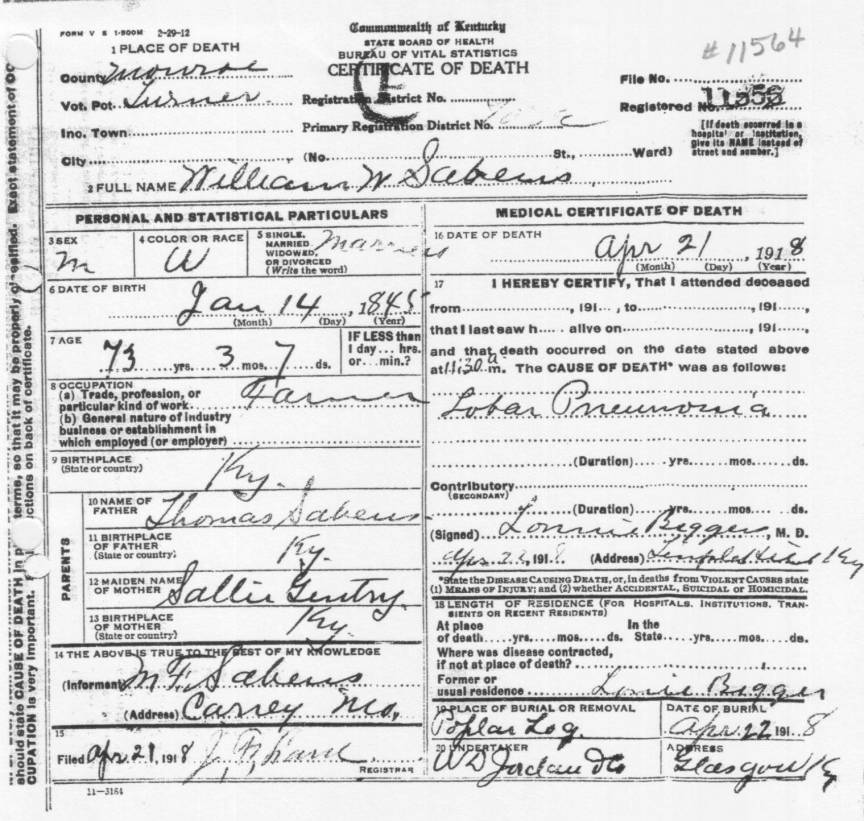 FORM V S 1-500M 2-29-12
Commonwealth of Kentucky
STATE BOARD OF HEALTH
BUREAU OF VITAL STATISTICS
CERTIFICATE OF DEATH
#11564
1 PLACE OF DEATH
County Monroe
Vot. Pct. Turner
Inc. Town
City
Registration District No.
Primary Registration District No.
(No. St., Ward)
File No.
Registered No. 11353
[If death occurred in a hospital or institution, give its NAME instead of street and number.]
2 FULL NAME William W Sabens
PERSONAL AND STATISTICAL PARTICULARS
3 SEX
m
4 COLOR OR RACE
W
5 SINGLE, MARRIED WIDOWED, OR DIVORCED (Write the word)
Married
6 DATE OF BIRTH
Jan 14, 1845
(Month) (Day) (Year)
7 AGE
73 yrs. 3 mos. 7 ds.
IF LESS than 1 day... hrs. or... min.?
8 OCCUPATION
(a) Trade, profession, or particular kind of work Farmer
(b) General nature of industry business or establishment in which employed (or employer)
9 BIRTHPLACE
(State or country)
Ky.
PARENTS
10 NAME OF FATHER
Thomas Sabens
11 BIRTHPLACE OF FATHER
(State or country)
Ky.
12 MAIDEN NAME OF MOTHER
Sallie Gentry
13 BIRTHPLACE OF MOTHER
(State or country)
Ky.
14 THE ABOVE IS TRUE TO THE BEST OF MY KNOWLEDGE
(Informant) M F. Sabens
(Address) Mo,
15
Filed Apr 21, 1918
REGISTRAR
11-3164
MEDICAL CERTIFICATE OF DEATH
16 DATE OF DEATH
Apr 21, 1918
(Month) (Day) (Year)
17 I HEREBY CERTIFY, That I attended deceased
from , 191 , to , 191 ,
that I last saw h alive on , 191 ,
and that death occurred on the date stated above
at 11:30 a m. The CAUSE OF DEATH* was as follows:
Lobar Pneumonia
(Duration) yrs. mos. ds.
Contributory
(SECONDARY)
(Duration) yrs. mos. ds.
(Signed) Lonnie Biggers, M. D.
Apr. 22, 1918 (Address) Ky
*State the DISEASE CAUSING DEATH, or, in deaths from VIOLENT CAUSES state
(1) MEANS OF INJURY; and (2) whether ACCIDENTAL, SUICIDAL OR HOMICIDAL.
18 LENGTH OF RESIDENCE (FOR HOSPITALS, INSTITUTIONS, TRANSIENTS OR RECENT RESIDENTS)
At place of death yrs. mos. ds. In the State yrs. mos. ds.
Where was disease contracted, if not at place of death?
Former or usual residence Lonie Bigger
19 PLACE OF BURIAL OR REMOVAL
Poplar Log.
DATE OF BURIAL
Apr. 22 1918
20 UNDERTAKER
W D Jordan
ADDRESS
Glasgow Ky
terms, so that it may be properly classified. Exact statement of OC
ctions on back of certificate.
should state CAUSE OF DEATH in p
CUPATION is very important.